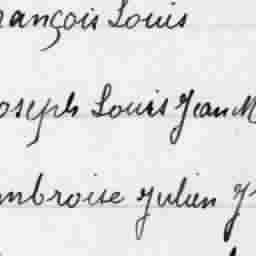 rançois Louis
oseph Louis Jean M
mbroise Julien